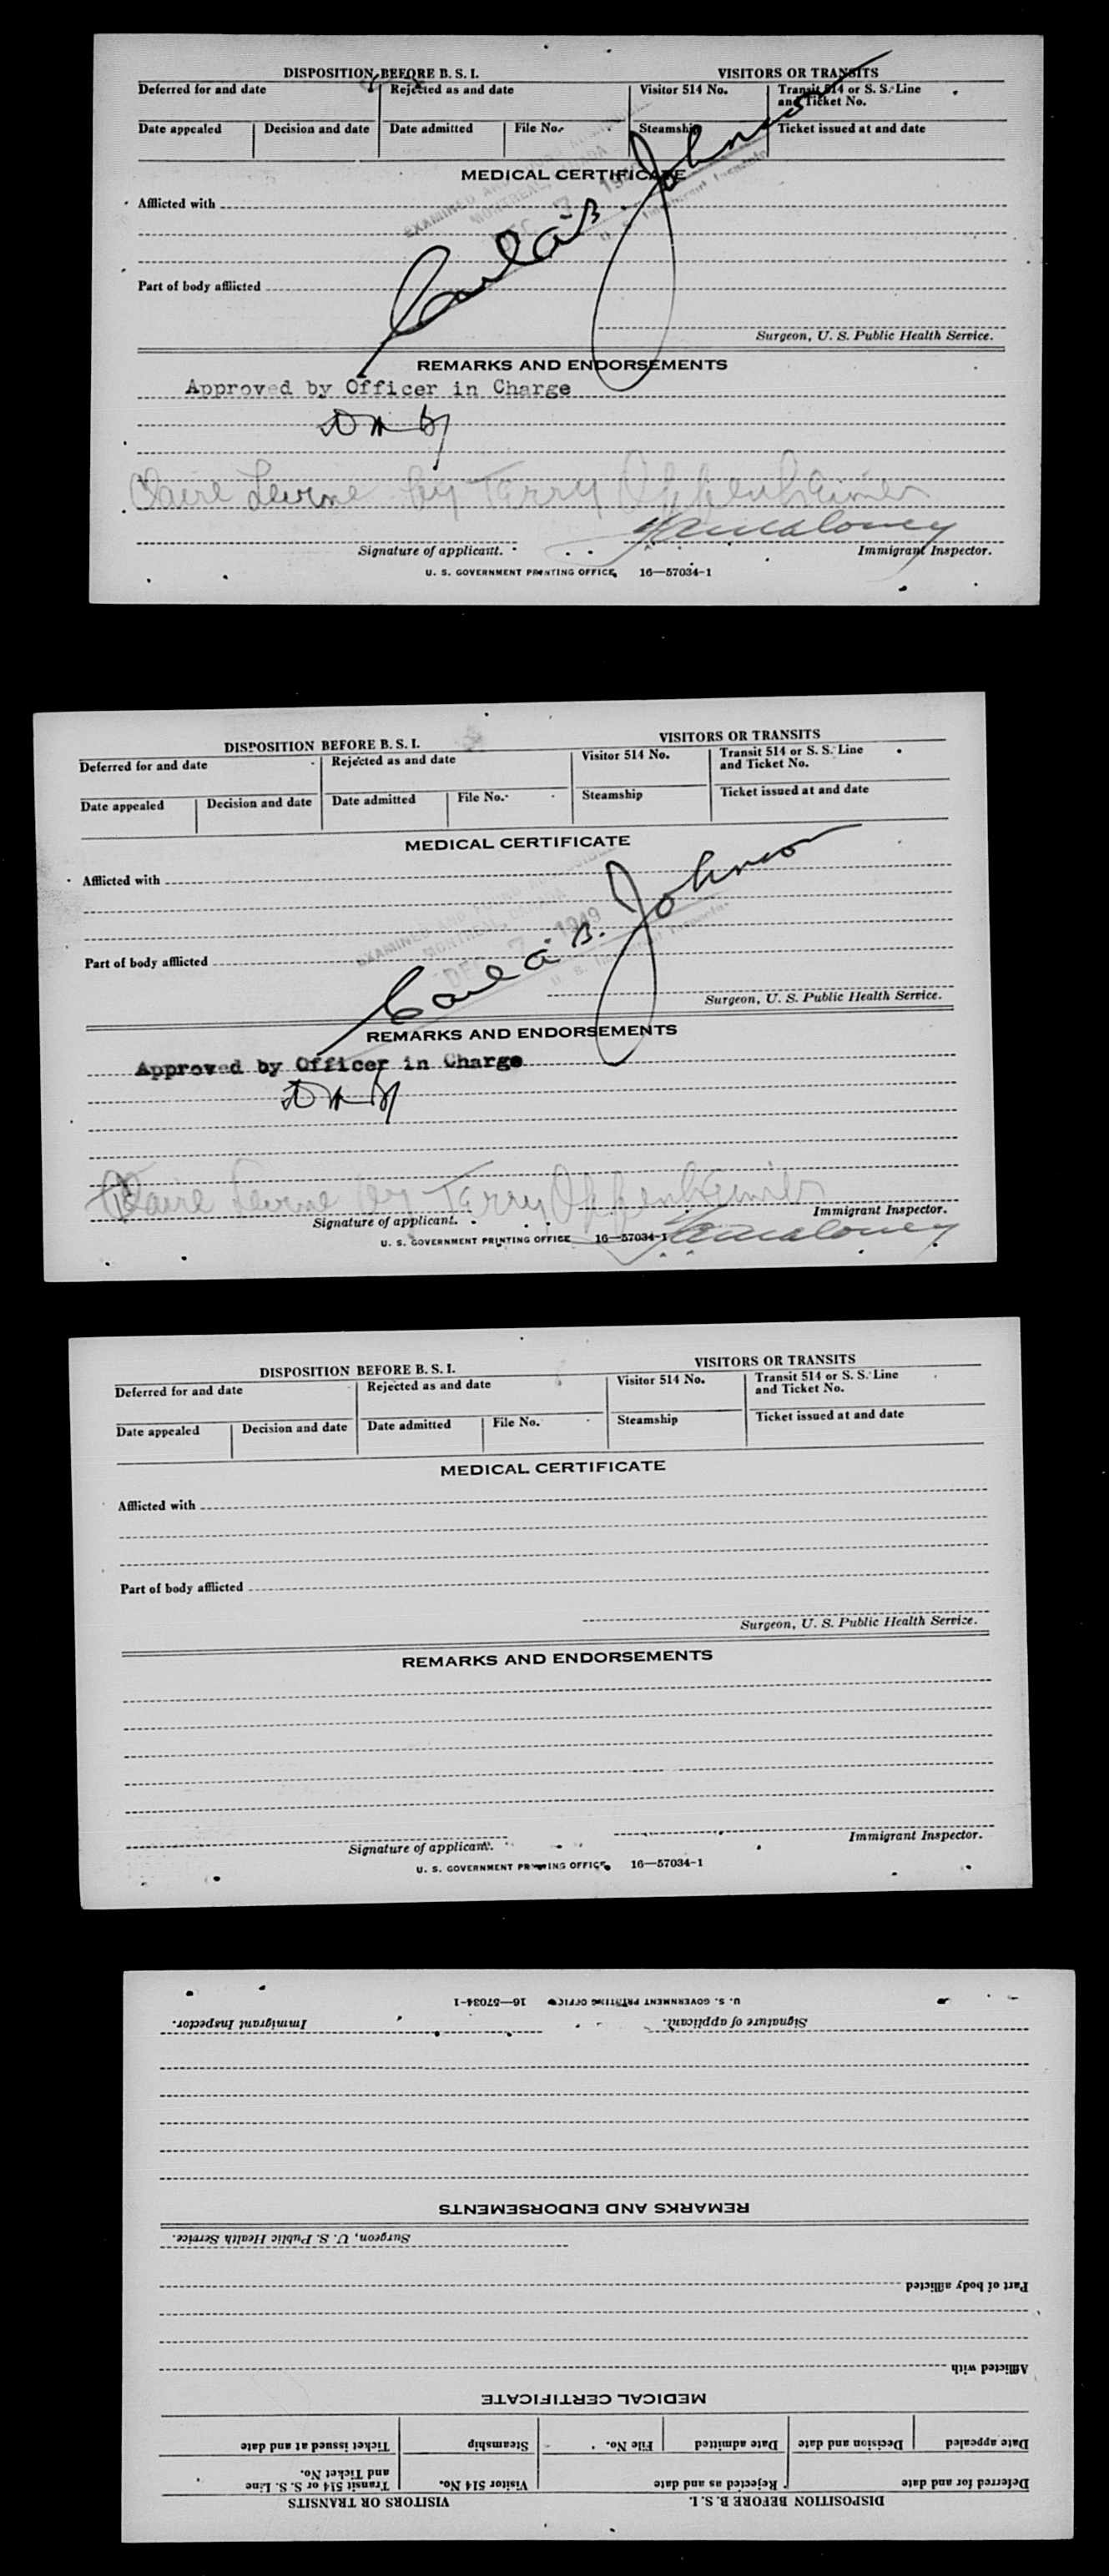 DISPOSITION BEFORE B. S. I.
VISITORS OR TRANSITS
Deferred for and date
Rejected as and date
Visitor 514 No.
Transit 514 or S. S. Line
and Ticket No.
Date appealed
Decision and date
Date admitted
File No.
Steamship
Ticket issued at and date
MEDICAL CERTIFICATE
EXAMINED AND
MONTREAL, CANADA
DEC 7 19
U. S. Immigrant Inspector
Afflicted with
Johnson
Part of body afflicted
Surgeon, U. S. Public Health Service.
REMARKS AND ENDORSEMENTS
Approved by Officer in Charge
Claire Levine by Terry Oppenheimer
Signature of applicant.
Immigrant Inspector.
U. S. GOVERNMENT PRINTING OFFICE 16—57034-1
DISPOSITION BEFORE B. S. I.
VISITORS OR TRANSITS
Deferred for and date
Rejected as and date
Visitor 514 No.
Transit 514 or S. S. Line
and Ticket No.
Date appealed
Decision and date
Date admitted
File No.
Steamship
Ticket issued at and date
MEDICAL CERTIFICATE
Afflicted with
EXAMINED AND
MONTREAL, CANADA
DEC 7 1949
U. S. Immigrant Inspector
B. Johnson
Part of body afflicted
Surgeon, U. S. Public Health Service.
REMARKS AND ENDORSEMENTS
Approved by Officer in Charge
Claire Levine by Terry Oppenheimer
Signature of applicant.
Immigrant Inspector.
U. S. GOVERNMENT PRINTING OFFICE 16—57034-1
DISPOSITION BEFORE B. S. I.
VISITORS OR TRANSITS
Deferred for and date
Rejected as and date
Visitor 514 No.
Transit 514 or S. S. Line
and Ticket No.
Date appealed
Decision and date
Date admitted
File No.
Steamship
Ticket issued at and date
MEDICAL CERTIFICATE
Afflicted with
Part of body afflicted
Surgeon, U. S. Public Health Service.
REMARKS AND ENDORSEMENTS
Signature of applicant.
Immigrant Inspector.
U. S. GOVERNMENT PRINTING OFFICE 16—57034-1
DISPOSITION BEFORE B. S. I.
VISITORS OR TRANSITS
Deferred for and date
Rejected as and date
Visitor 514 No.
Transit 514 or S. S. Line
and Ticket No.
Date appealed
Decision and date
Date admitted
File No.
Steamship
Ticket issued at and date
MEDICAL CERTIFICATE
Afflicted with
Part of body afflicted
Surgeon, U. S. Public Health Service.
REMARKS AND ENDORSEMENTS
Signature of applicant.
Immigrant Inspector.
U. S. GOVERNMENT PRINTING OFFICE 16—57034-1